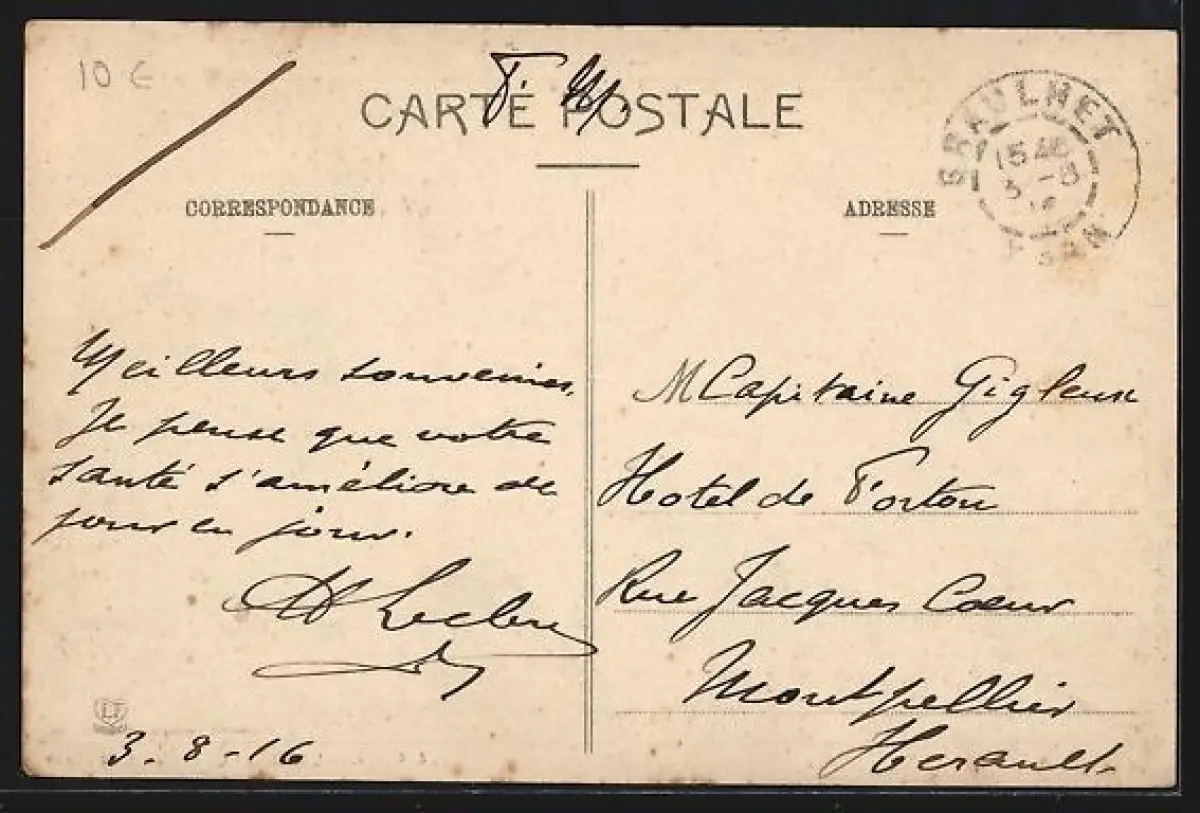 10 €
F. M.
CARTE POSTALE
CORRESPONDANCE
ADRESSE
GRAULHET
15
3 -8
TARN
Meilleurs souvenirs.
Je pense que votre
santé s'améliore de
jour en jour.
Leclerc
3-8-16
M Capitaine Gigleux
Hotel de Forton
Rue Jacques Coeur
Montpellier
Herault